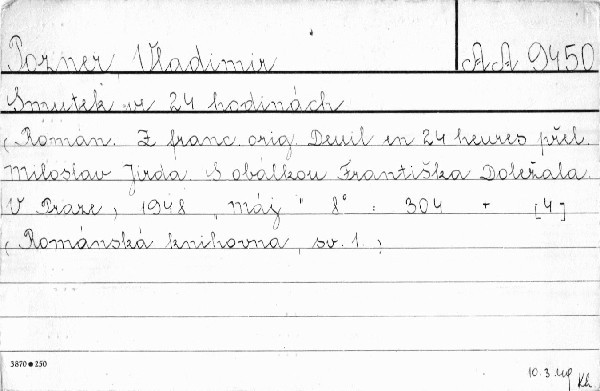 Pozner, Vladimir AA 9450
Smutek ve 24 hodinách
(Román. Z franc. orig. Deuil en 24 heures přel.
Miloslav Jirda. S obálkou Františka Doležala.
V Praze, 1948 „Máj" 8° : 304 + [4]
(Románská knihovna, sv. 1.)
3870 ● 250
10. 3. 49
Kh.